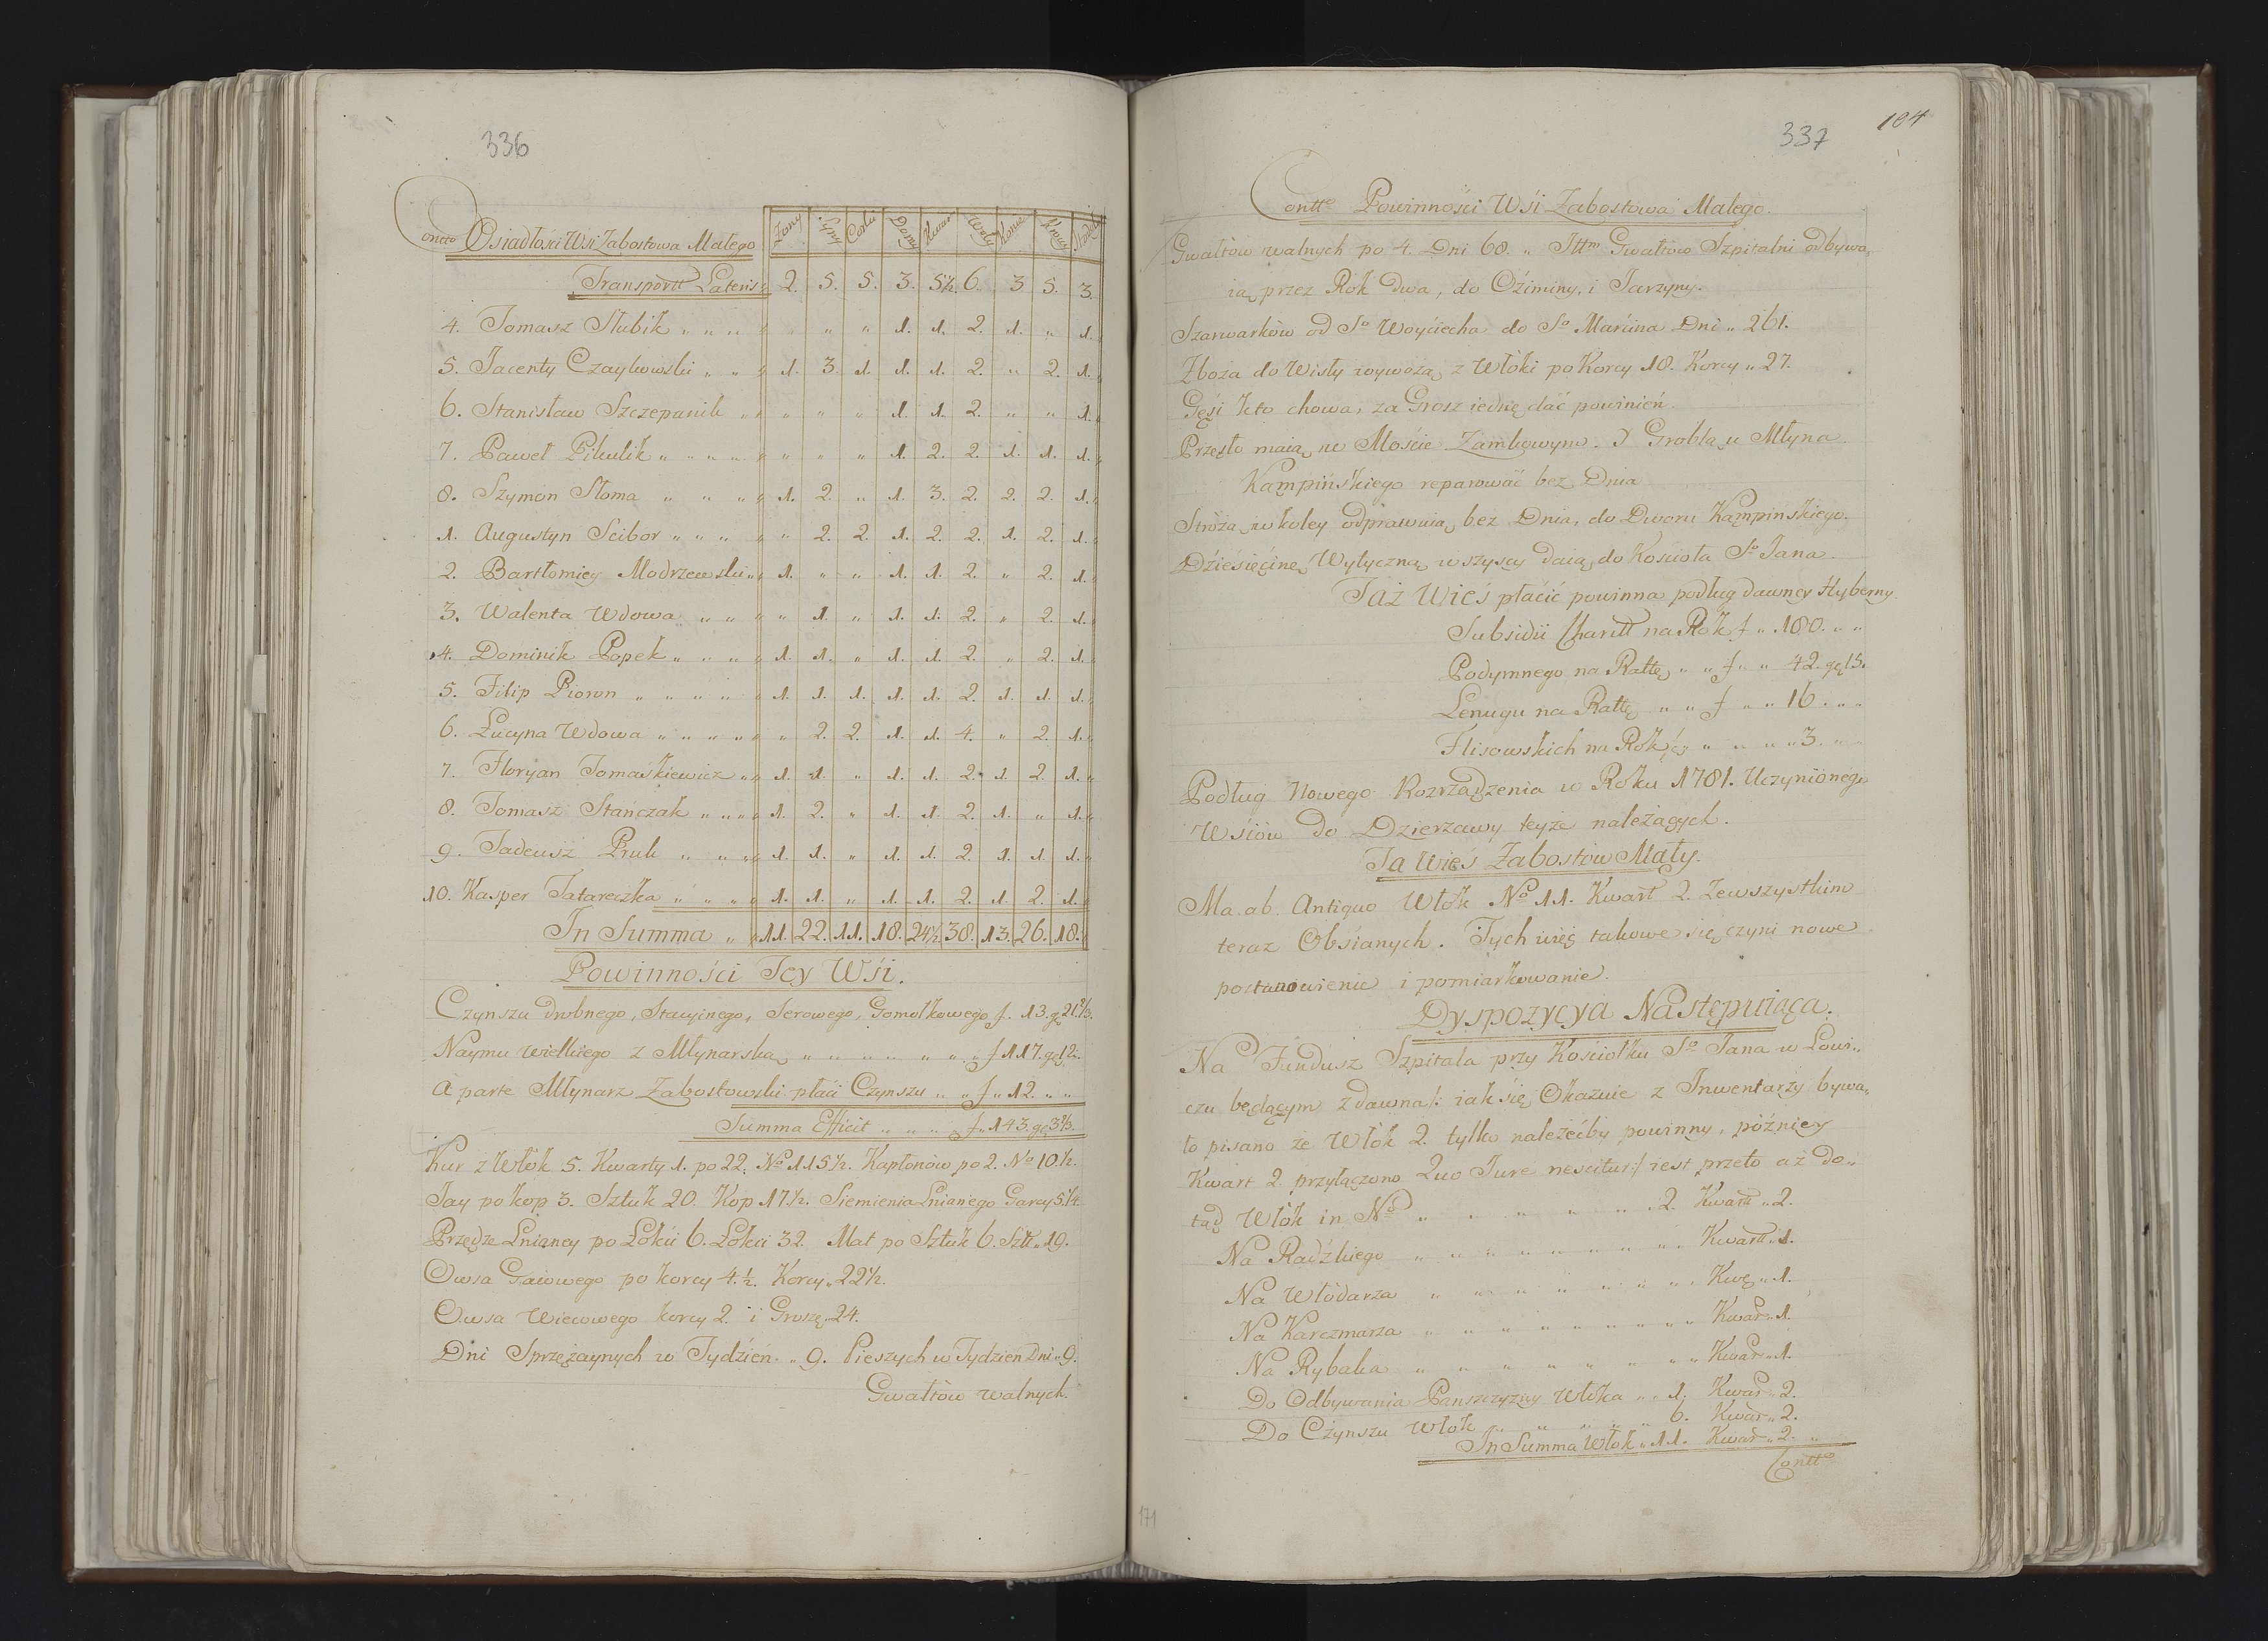 336
Contto Osiadłości Wsi Zabostowa Małego Żony Syny Corki Domy Kwar Woły Konie Krowy
Transportt Lateris 2. 5. 5. 3. 5½. 6. 3 5. 3.
4. Tomasz Słubik „ „ „ „ „ „ „ 1. 1. 2. 1. „ 1.
5. Jacenty Czaykowski „ „ „ 1. 3. 1. 1. 1. 2. „ 2. 1.
6. Stanisław Szczepanik „ „ „ „ „ 1. 1. 2. „ „ 1.
7. Paweł Pikulik „ „ „ „ „ „ „ „ 1. 2. 2. 1. 1. 1.
8. Szymon Słoma „ „ „ „ 1. 2. „ 1. 3. 2. 2. 2. 1.
1. Augustyn Scibor „ „ „ „ „ 2. 2. 1. 2. 2. 1. 2. 1.
2. Bartłomiey Modrzewski „ „ 1. „ „ 1. 1. 2. „ 2. 1.
3. Walenta Wdowa „ „ „ „ „ 1. „ 1. 1. 2. „ 2. 1.
4. Dominik Popek „ „ „ „ 1. 1. „ 1. 1. 2. „ 2. 1.
5. Filip Piorun „ „ „ „ „ 1. 1. 1. 1. 1. 2. 1. 1. 1.
6. Łucyna Wdowa „ „ „ „ „ „ 2. 2. 1. 1. 4. „ 2. 1.
7. Floryan Tomaśkiewicz „ „ 1. 1. „ 1. 1. 2. 1. 2. 1.
8. Tomasz Stańczak „ „ „ „ 1. 2. „ 1. 1. 2. 1. „ 1.
9. Tadeusz Pruk „ „ „ „ 1. 1. „ 1. 1. 2. 1. 1. 1.
10. Kasper Tatareczka „ „ „ „ 1. 1. „ 1. 1. 2. 1. 2. 1.
In Summa „ „ 11. 22. 11. 18. 24½. 38. 13. 26. 18.
Powinności Tey Wśi.
Czynszu drobnego, Stacyinego, Serowego, Gomołkowego f. 13. g 21⅔.
Naymu wielkiego z Młynarską „ „ „ „ „ „ „ f 117. gę 12.
A parte Młynarz Zabostowski płaci Czynszu „ „ f „ 12. „ „
Summa Efficit „ „ „ „ f „ 143. gę 3⅔.
Kur z Włok 5. Kwarty 1. po 22. No 115½. Kapłonów po 2. No 10.½.
Jay po kop 3. Sztuk 20. Kop 17½. Siemienia Lnianego Garcy 5.¼.
Przędze Lnianey po Łokci 6. Łokci 32. Mat po Sztuk 6. Szt „ 19.
Owsa Gaiowego po korcy 4.½. Korcy „ 22½.
Owsa Wiecowego korcy 2. i Groszę „ 24.
Dni Sprzężaynych w Tydzień „ 9. Pieszych w Tydzień Dni „ 9.
Gwałtów walnych.
337
184
Contto Powinności Wśi Zabostowa Małego.
Gwałtów walnych po 4. Dni 68. „ Ittm Gwałtów Szpitalni odbywa„
ią przez Rok dwa, do Oźiminy, i Jarzyny.
Szarwarków od So Woyćiecha do So Marćina Dni „ 261.
Zboża do Wisły wywożą z Włoki po Korcy 18. Korcy „ 27.
Gęśi kto chowa, za Grosz iednę dać powinień.
Przęsło maią w Moście Zamkowym. Y Groblą u Młyna
Kampińskiego reparować bez Dnia
Stróżą w koley odprawuią bez Dnia, do Dworu Kampinskiego.
Dźieśięćinę Wytyczną wszyscy daią do Kościoła So Jana.
Taż Wieś płaćić powinna podług dawney Hyberny
Subsidii Charitt na Rok f „ 180. „ „
Podymnego na Rattę „ „ f „ „ 42. gę 15.
Lenugu na Rattę „ „ f „ „ 16. „ „
Flisowskich na Rok „ „ „ „ 3. „ „
Podług Nowego Rozrządzenia w Roku 1781. Uczynionégo
Wsiów do Dzierżawy teyże należących.
Ta Wieś Zabostów Mały.
Ma ab Antiquo Włók No 11. Kwart 2. Zewszystkim
teraz Obsianych. Tych więc takowe się czyni nowe
postanowienie i pomiarkowanie.
Dyspozycya Następuiąca.
Na Fundusz Szpitala przy Kosciołku So Jana w Łowi„
czu będącym zdawna /: iak się Okazuie z Inwentarzy bywa„
ło pisano że Włók 2. tylko należećby powinny, poźniey
Kwart 2 przyłączono Quo Jure nescitur :/ iest przeto aż do„
tąd Włók in No „ „ „ „ „ „ 2. Kwartt „ 2.
Na Radźkiego „ „ „ „ „ „ „ „ Kwartt „ 1.
Na Włódarza „ „ „ „ „ „ „ „ Kwę „ 1.
Na Karczmarza „ „ „ „ „ „ „ „ Kwar „ 1.
Na Rybaka „ „ „ „ „ „ „ „ Kwar „ 1.
Do Odbywania Panszczyzny Włoka „ „ 1. Kwar „ 2.
Do Czynszu Włok „ „ „ „ „ 6. Kwar „ 2.
In Summa Włok „ 11. Kwar „ 2. „
Contto
171